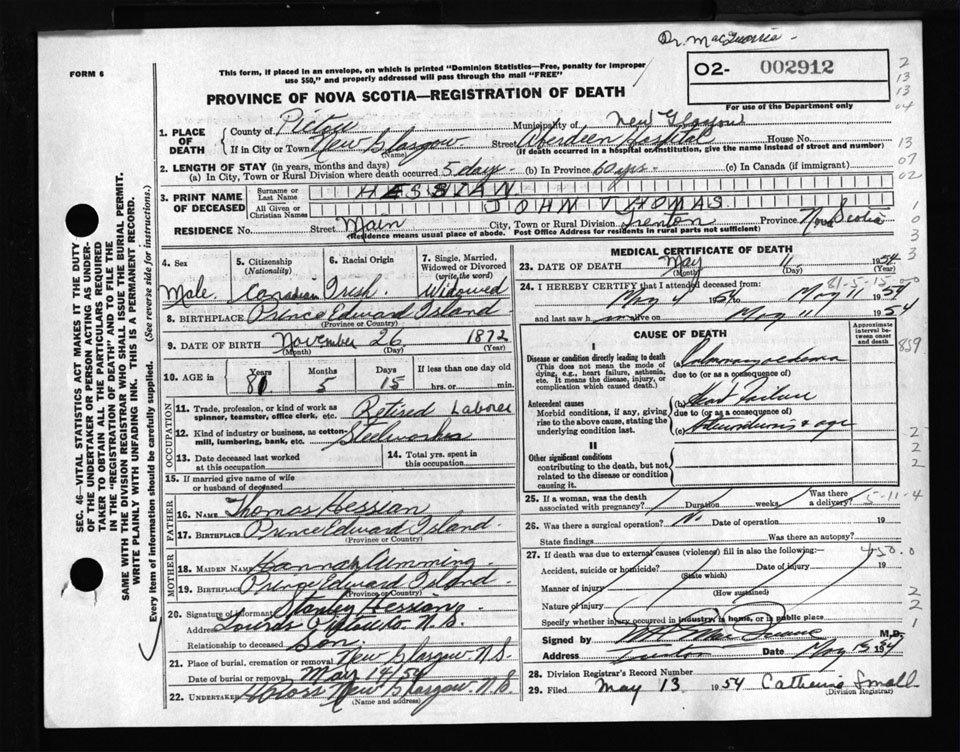 Dr. MacQuarrie -
FORM 6
This form, if placed in an envelope, on which is printed "Dominion Statistics—Free, penalty for improper
use $50," and properly addressed will pass through the mail "FREE"
02- 002912
For use of the Department only
PROVINCE OF NOVA SCOTIA—REGISTRATION OF DEATH
1. PLACE OF DEATH
County of Pictou Municipality of New Glasgow
If in City or Town New Glasgow (Name) Street Aberdeen Hospital House No.
(If death occurred in a hospital or institution, give the name instead of street and number)
2. LENGTH OF STAY (in years, months and days)
(a) In City, Town or Rural Division where death occurred 5 days - (b) In Province 60 yrs - (c) In Canada (if immigrant)
3. PRINT NAME OF DECEASED
Surname or Last Name HESSIAN
All Given or Christian Names JOHN THOMAS
RESIDENCE No. Street Main City, Town or Rural Division Trenton Province Nova Scotia
(Residence means usual place of abode. Post Office Address for residents in rural parts not sufficient)
4. Sex Male
5. Citizenship (Nationality) Canadian
6. Racial Origin Irish
7. Single, Married, Widowed or Divorced (write the word) Widowed
8. BIRTHPLACE Prince Edward Island
(Province or Country)
9. DATE OF BIRTH November 26 1872
(Month) (Day) (Year)
10. AGE in Years 81 Months 5 Days 15 If less than one day old hrs. or min.
OCCUPATION
11. Trade, profession, or kind of work as spinner, teamster, office clerk, etc. Retired Laborer
12. Kind of industry or business, as cotton-mill, lumbering, bank, etc. Steelworks
13. Date deceased last worked at this occupation
14. Total yrs. spent in this occupation
15. If married give name of wife or husband of deceased
FATHER
16. Name Thomas Hessian
17. Birthplace Prince Edward Island
(Province or Country)
MOTHER
18. Maiden Name Hannah
19. Birthplace Prince Edward Island
(Province or Country)
20. Signature of informant Stanley Hessian
Address N.B.
Relationship to deceased Son
21. Place of burial, cremation or removal New Glasgow N.S.
Date of burial or removal May 14/54
22. UNDERTAKER New Glasgow N.S.
(Name and address)
MEDICAL CERTIFICATE OF DEATH
23. DATE OF DEATH May 11 1954
(Month) (Day) (Year)
24. I HEREBY CERTIFY that I attended deceased from:
May 4 1954 to May 11 1954
and last saw him alive on May 11 1954
CAUSE OF DEATH
Approximate interval between onset and death
I
Disease or condition directly leading to death
(This does not mean the mode of dying, e.g., heart failure, asthenia, etc. It means the disease, injury, or complication which caused death.)
(a) Pulmonary oedema
due to (or as a consequence of)
Antecedent causes
Morbid conditions, if any, giving rise to the above cause, stating the underlying condition last.
(b) Heart Failure
due to (or as a consequence of)
(c) & age
II
Other significant conditions
contributing to the death, but not related to the disease or condition causing it.
25. If a woman, was the death associated with pregnancy? Duration weeks. Was there a delivery?
26. Was there a surgical operation? No Date of operation 19
State findings Was there an autopsy?
27. If death was due to external causes (violence) fill in also the following:
Accident, suicide or homicide? Date of injury 19
(State which)
Manner of injury
(How sustained)
Nature of injury
Specify whether injury occurred in industry, in home, or in public place
Signed by M.D.
Address Trenton Date May 13 1954
28. Division Registrar's Record Number
29. Filed May 13 1954 Catherine Small
(Division Registrar)
SEC. 46—VITAL STATISTICS ACT MAKES IT THE DUTY
OF THE UNDERTAKER OR PERSON ACTING AS UNDER-
TAKER TO OBTAIN ALL THE PARTICULARS REQUIRED
IN THE "REGISTRATION OF DEATH" AND TO FILE THE
SAME WITH THE DIVISION REGISTRAR WHO SHALL ISSUE THE BURIAL PERMIT.
WRITE PLAINLY WITH UNFADING INK. THIS IS A PERMANENT RECORD.
Every item of information should be carefully supplied. (See reverse side for instructions.)